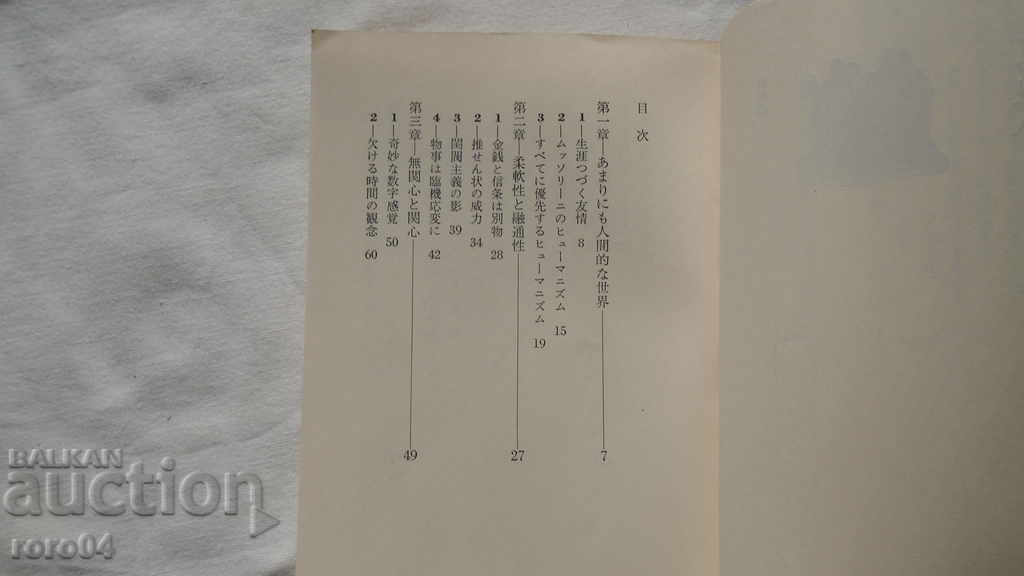 目次
第一章―あまりにも人間的な世界 7
1―生涯つづく友情 8
2―ムッソリーニのヒューマニズム 15
3―すべてに優先するヒューマニズム 19
第二章―柔軟性と融通性 27
1―金銭と信条は別物 28
2―推せん状の威力 34
3―閨閥主義の影 39
4―物事は臨機応変に 42
第三章―無関心と関心 49
1―奇妙な数字感覚 50
2―欠ける時間の観念 60
BALKAN
auction
roro04